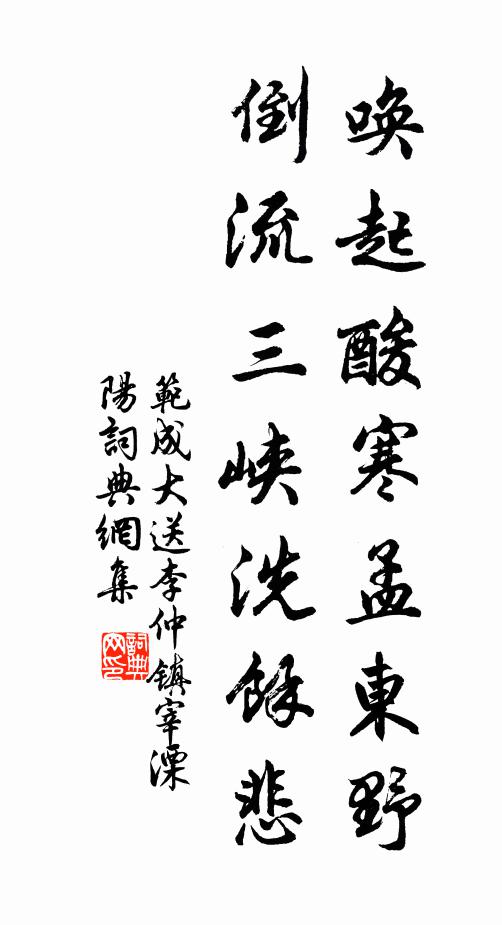 喚起酸寒孟東野
倒流三峽洗餘悲
範成大送李仲鎮宰溧
陽詞典網集
詞典網印